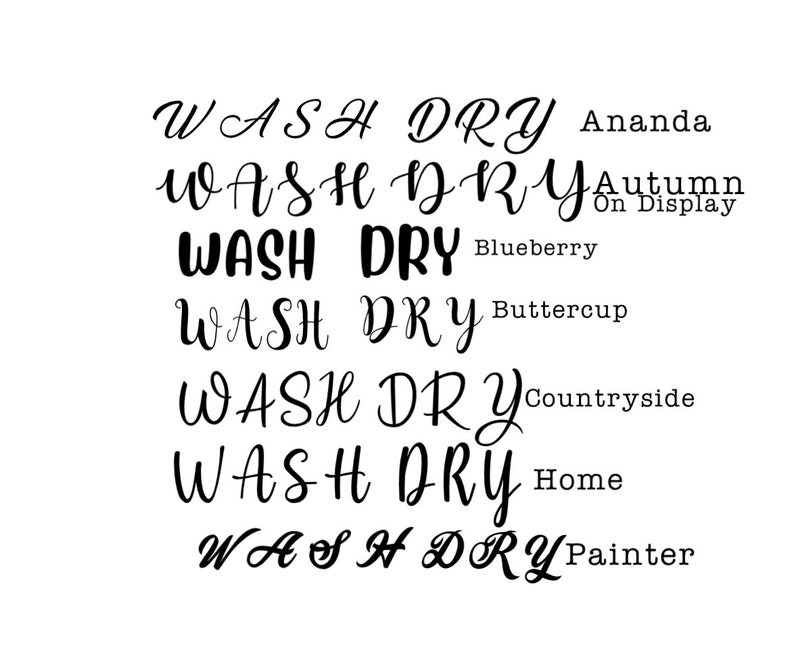 WASH DRY Ananda
WASH DRY Autumn
On Display
WASH DRY Blueberry
WASH DRY Buttercup
WASH DRY Countryside
WASH DRY Home
WASH DRY Painter